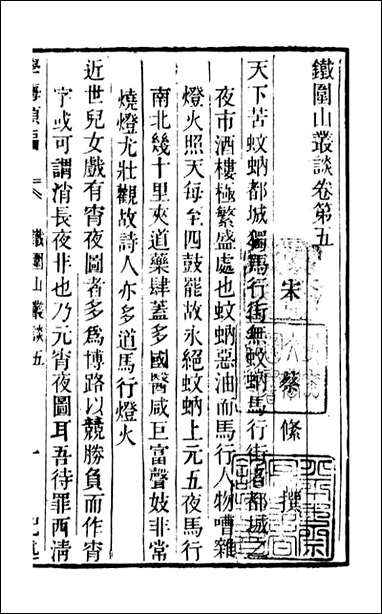 鐵圍山叢談卷第五
宋 蔡絛 撰
天下苦蚊蚋都城獨馬行街無蚊蚋馬行街者都城之
夜市酒樓極繁盛處也蚊蚋惡油而馬行人物嘈雜
燈火照天每至四鼓罷故永絕蚊蚋上元五夜馬行
南北幾十里夾道藥肆蓋多國醫咸巨富聲妓非常
燒燈尤壯觀故詩人亦多道馬行燈火
近世兒女戲有宵夜圖者多為博路以競勝負而作宵
字或可謂消長夜非也乃元宵夜圖耳吾待罪西清
學海類編
鐵圍山叢談五
一